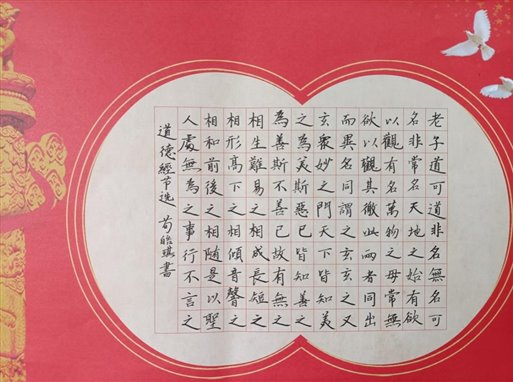 老子道可道非名無名可
名非常名天地之始有欲
以觀有名萬物之母常無
欲以觀其徼此两者同出
而異名同謂之玄玄之又
玄衆妙之門天下皆知美
之為美斯惡已皆知善之
為善斯不善已故有無之
相生難易之相成長短之
相形高下之相傾音聲之
相和前後之相隨是以聖
人處無為之事行不言之
道德經节选 書